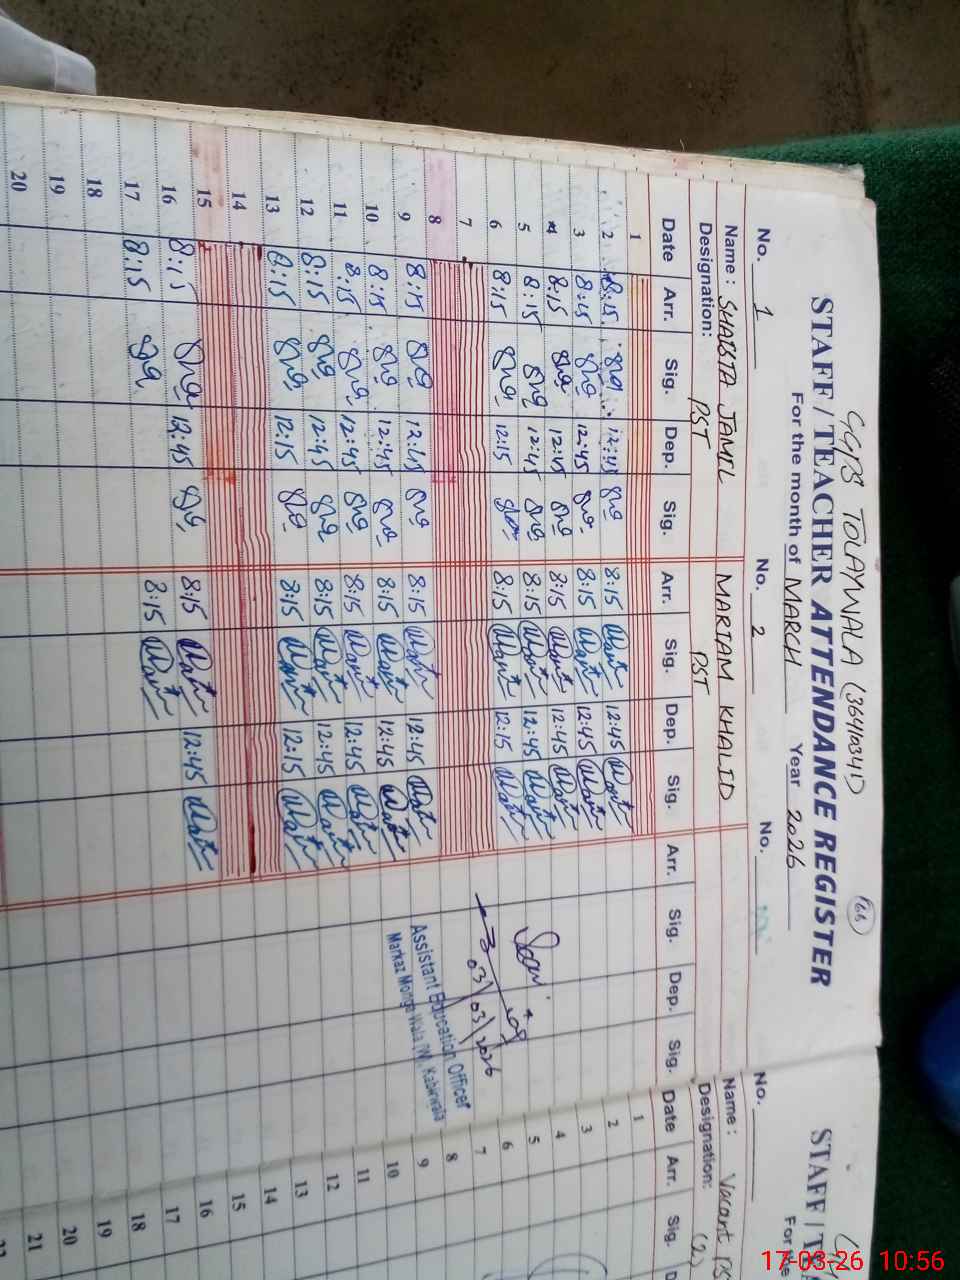 GGPS TOLAYWALA
STAFF / TEACHER ATTENDANCE REGISTER
For the month of MARCH Year 2026
No. 1 No. 2 No.
Name : SHAISTA JAMIL MARIAM KHALID
Designation: PST PST
Date Arr. Sig. Dep. Sig. Arr. Sig. Dep. Sig. Arr. Sig. Dep. Sig.
1
2 8:15 12:45 8:15 12:45
3 8:15 12:45 8:15 12:45
4 8:15 12:45 8:15 12:45
5 8:15 12:45 8:15 12:45
6 8:15 12:15 8:15 12:15
7
8
9 8:15 12:45 8:15 12:45
10 8:15 12:45 8:15 12:45
11 8:15 12:45 8:15 12:45
12 8:15 12:45 8:15 12:45
13 8:15 12:15 8:15 12:15
14
15
16 8:15 12:45 8:15 12:45
17 8:15 8:15
18
19
20
03/03/2026
Assistant Education Officer
Markaz Monga Wala (W), Kabirwala
STAFF / TEA
For the
No.
Name : Vacant
Designation: (2)
Date Arr. Sig.
1
2
3
4
5
6
7
8
9
10
11
12
13
14
15
16
17
18
19
20
21
17-03-26 10:56